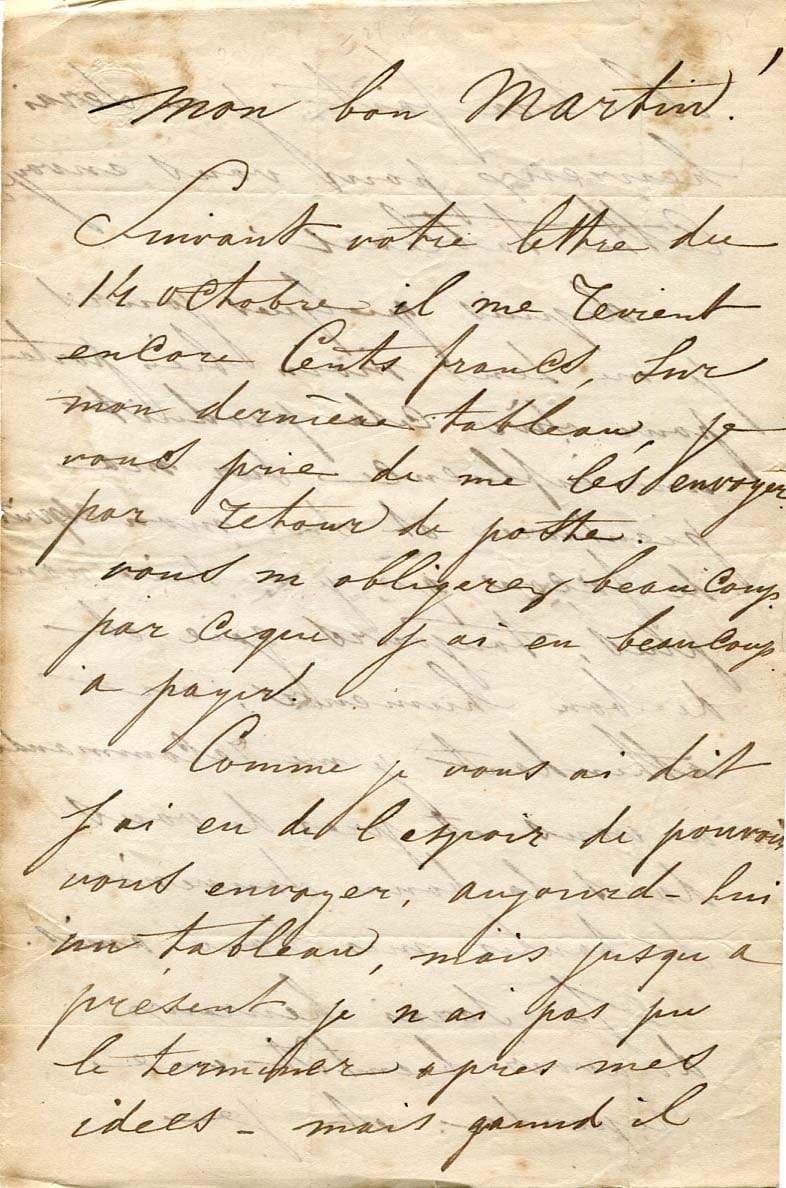 mon bon Martin!
Suivant votre lettre du
14 octobre il me revient
encore Cents francs, sur
mon dernière tableau, je
vous prie de me les envoyer
par retour de poste.
vous m obligerez beaucoup
par ceque j ai eu beaucoup
a payer.
Comme je vous ai dit
j ai eu de l espoir de pouvoir
vous envoyer, aujourd-hui
un tableau, mais jusqu a
présent je n ai pas pu
le terminer apres mes
idees - mais quand il